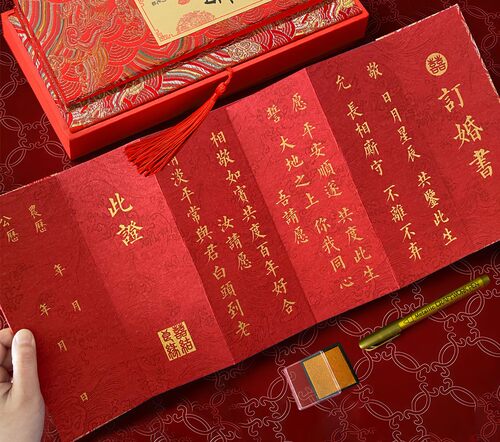 囍
訂婚書
敬 日月星辰 共鑒此生
允 長相廝守 不離不弃
愿 平安順遂 共度此生
誓 大地之上 你我同心
吾請愿
相敬如賓共度百年好合
汝請愿
淡平常與君白頭到老
此證
農歷 年 月 日
公歷 年 月 日